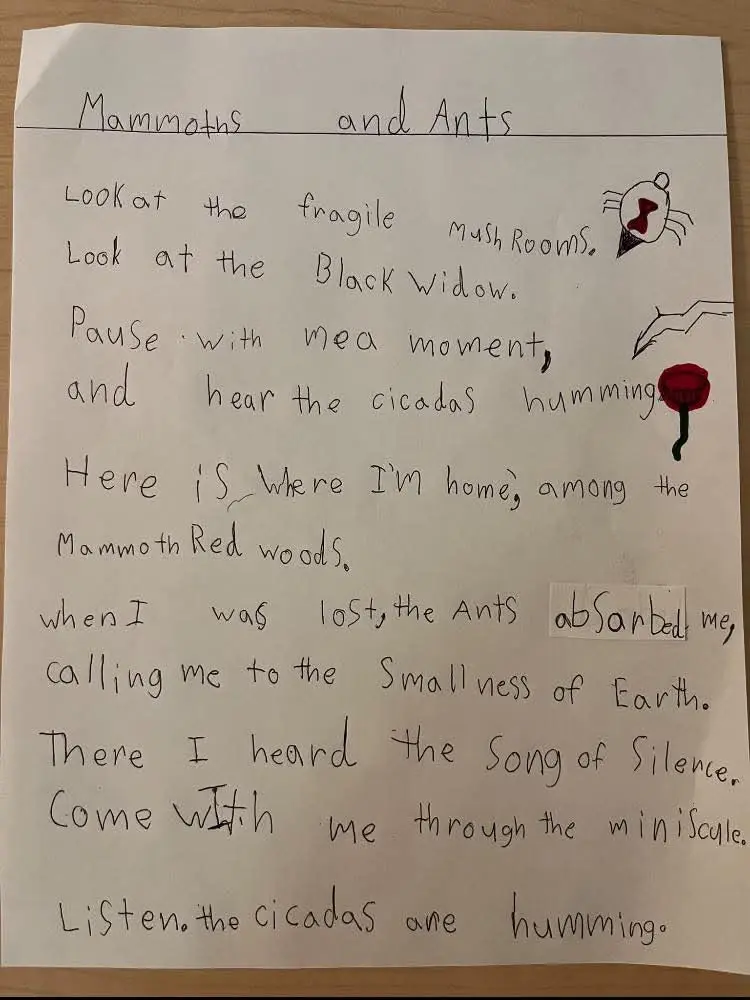 Mammoths and Ants
Look at the fragile MushRooms.
Look at the Black Widow.
Pause with me a moment,
and hear the cicadas humming.
Here is where I'm home, among the
Mammoth Red woods.
when I was lost, the Ants absarbed me,
calling me to the Smallness of Earth.
There I heard the Song of Silence.
Come with me through the miniscule.
Listen. the cicadas are humming.